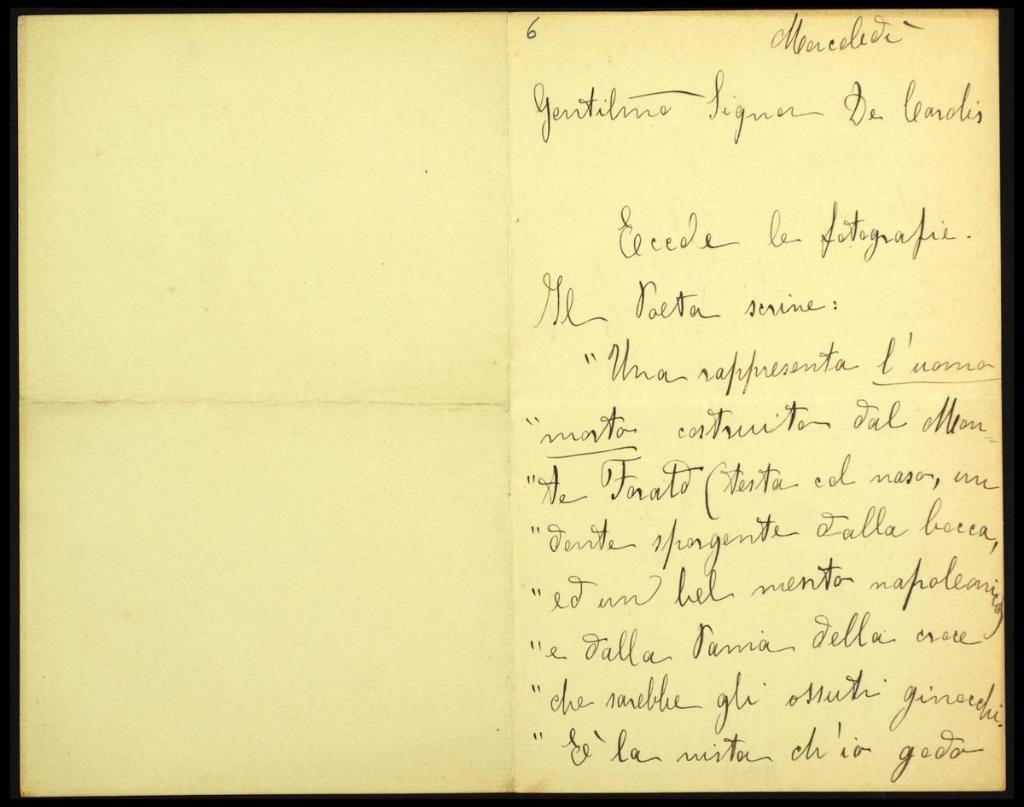 6
Mercoledì
Gentilmo Signor De Carolis
Eccole le fotografie.
Il Poeta scrive:
"Una rappresenta l'uomo
"morto costruito dal Mon=
"te Forato (testa col naso, un
"dente sporgente dalla bocca,
"ed un bel mento napoleonico)
"e dalla Pania della croce
"che sarebbe gli ossuti ginocchi.
"E' la vista ch'io godo